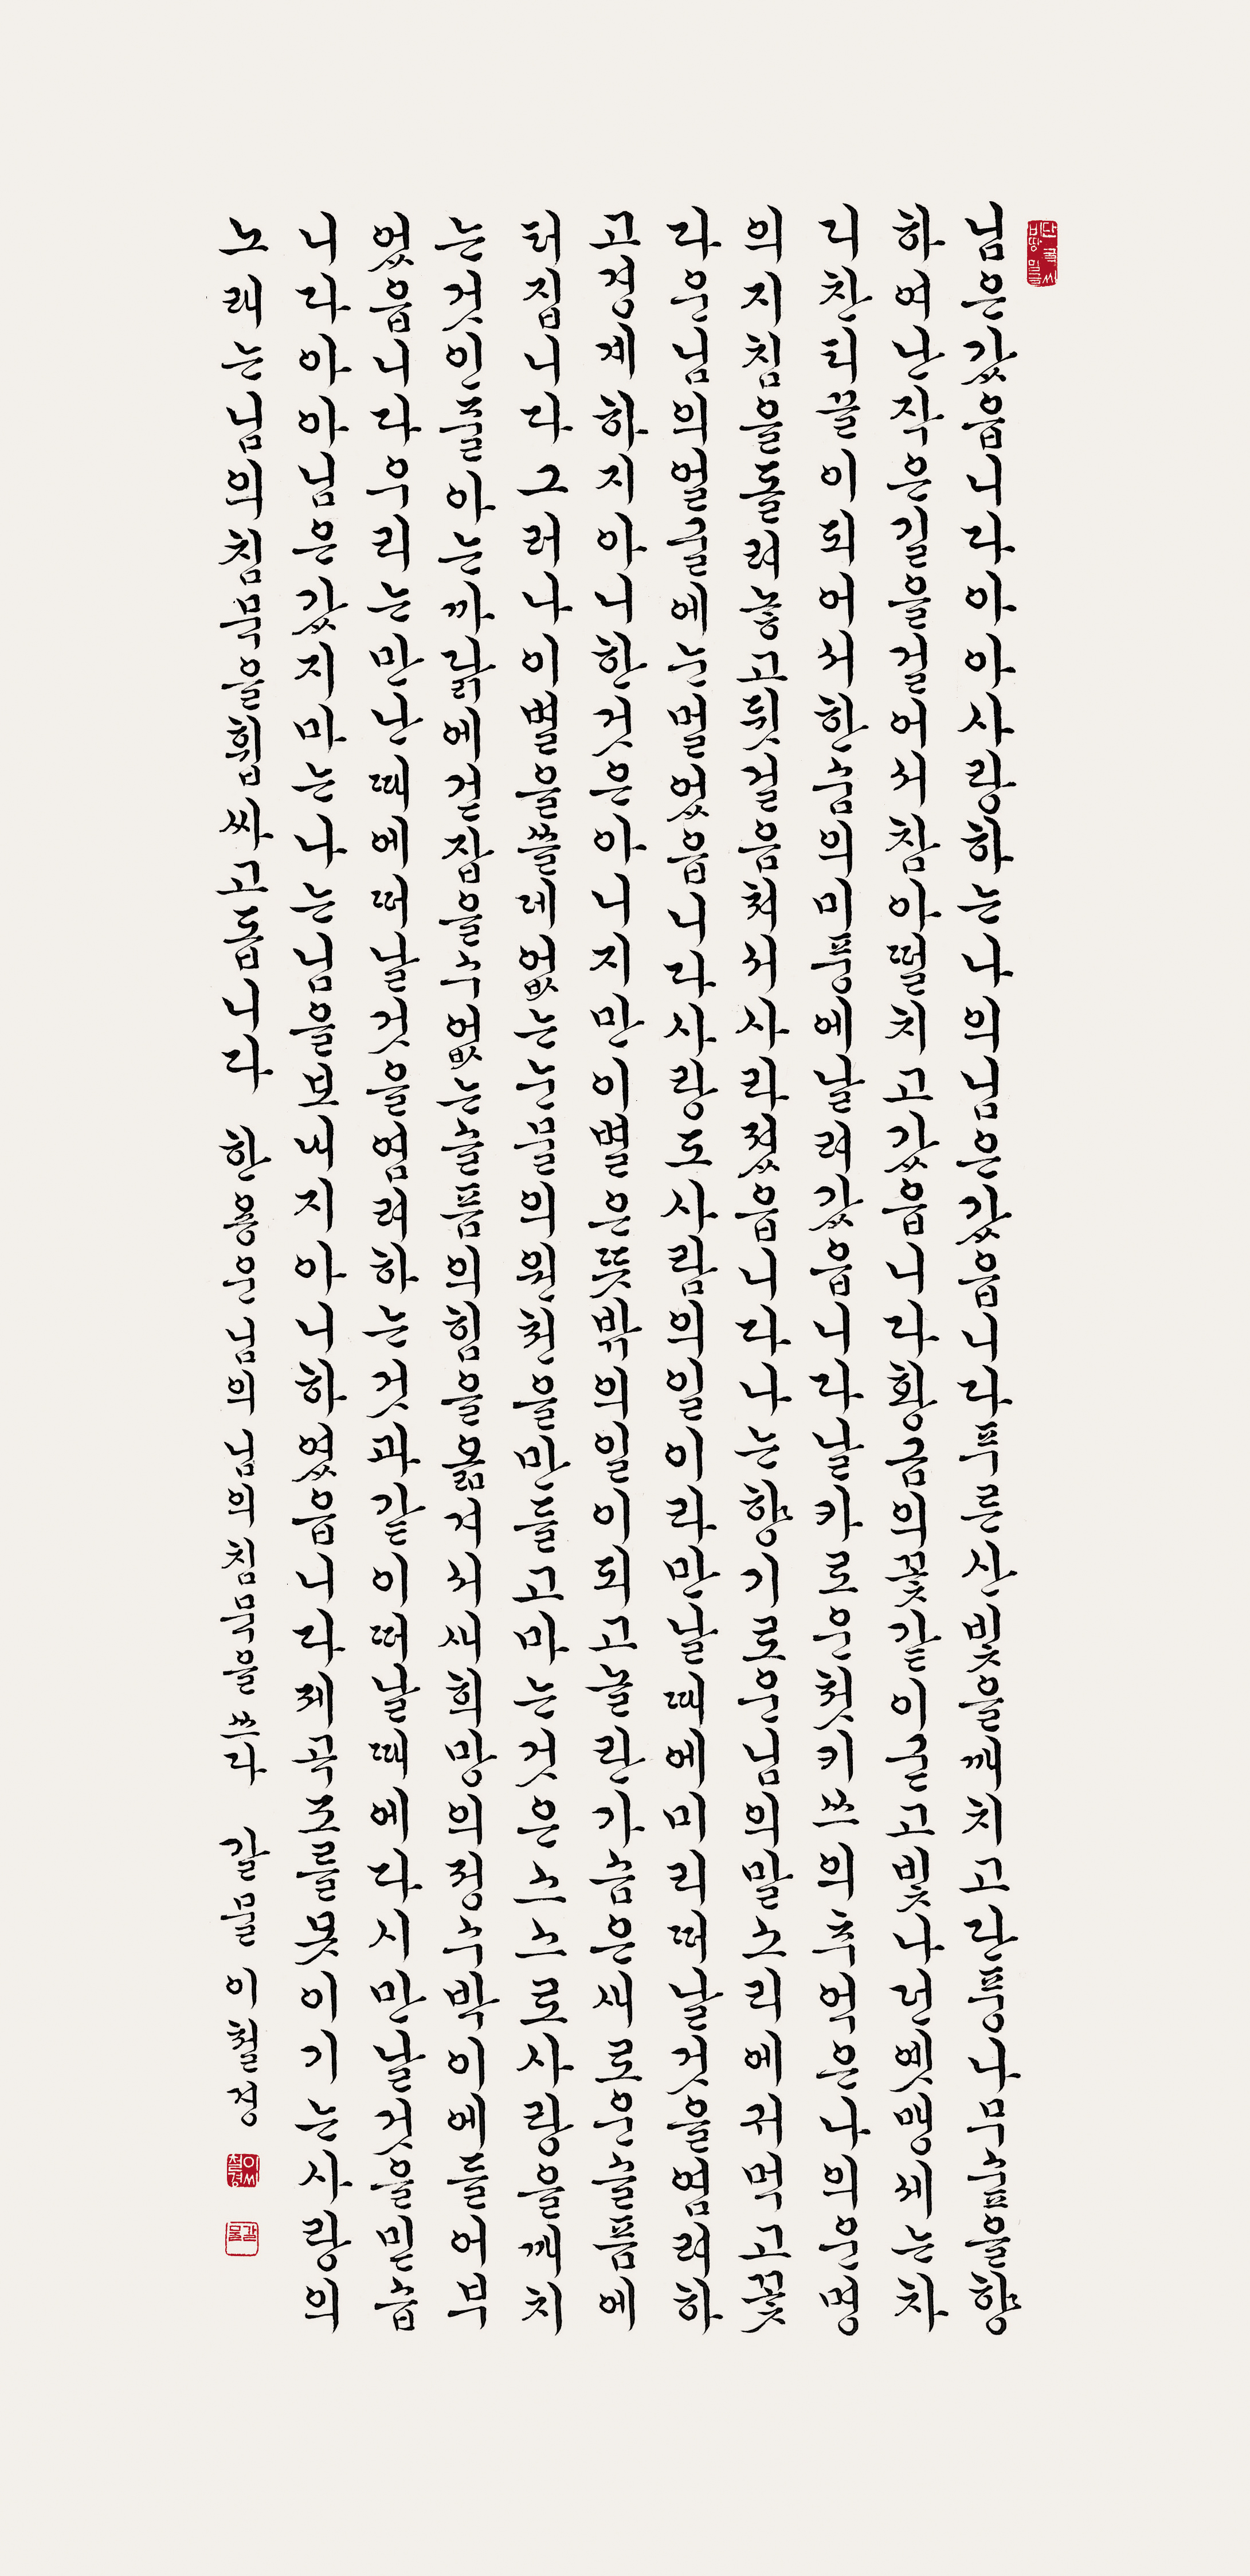 님은갔읍니다아아사랑하는나의님은갔읍니다푸른산빛을깨치고단풍나무숲을향
하여난작은길을걸어서참아떨치고갔읍니다황금의꽃같이굳고빛나던옛맹세는차
디찬티끌이되어서한숨의미풍에날려갔읍니다날카로운첫키쓰의추억은나의운명
의지침을돌려놓고뒷걸음쳐서사라졌읍니다나는향기로운님의말소리에귀먹고꽃
다운님의얼굴에눈멀었읍니다사랑도사람의일이라만날때에미리떠날것을염려하
고경계하지아니한것은아니지만이별은뜻밖의일이되고놀란가슴은새로운슬픔에
터집니다그러나이별을쓸데없는눈물의원천을만들고마는것은스스로사랑을깨치
는것인줄아는까닭에걷잡을수없는슬픔의힘을옮겨서새희망의정수박이에들어부
었읍니다우리는만난때에떠날것을염려하는것과같이떠날때에다시만날것을믿습
니다아아님은갔지마는나는님을보내지아니하였읍니다제곡조를못이기는사랑의
노래는님의침묵을휩싸고돕니다 한용운님의님의침묵을쓰다 갈물 이철경
이씨철경
갈물